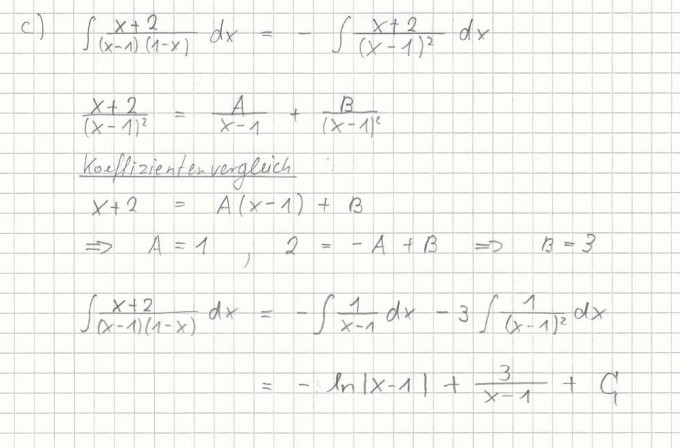 c) ∫ (x+2)/((x-1)(1-x)) dx = - ∫ (x+2)/((x-1)²) dx
(x+2)/((x-1)²) = A/(x-1) + B/((x-1)²)
Koeffizientenvergleich :
x+2 = A(x-1) + B
⇒ A = 1 , 2 = -A + B ⇒ B = 3
∫ (x+2)/((x-1)(1-x)) dx = - ∫ 1/(x-1) dx - 3 ∫ 1/((x-1)²) dx
= - ln|x-1| + 3/(x-1) + C₁